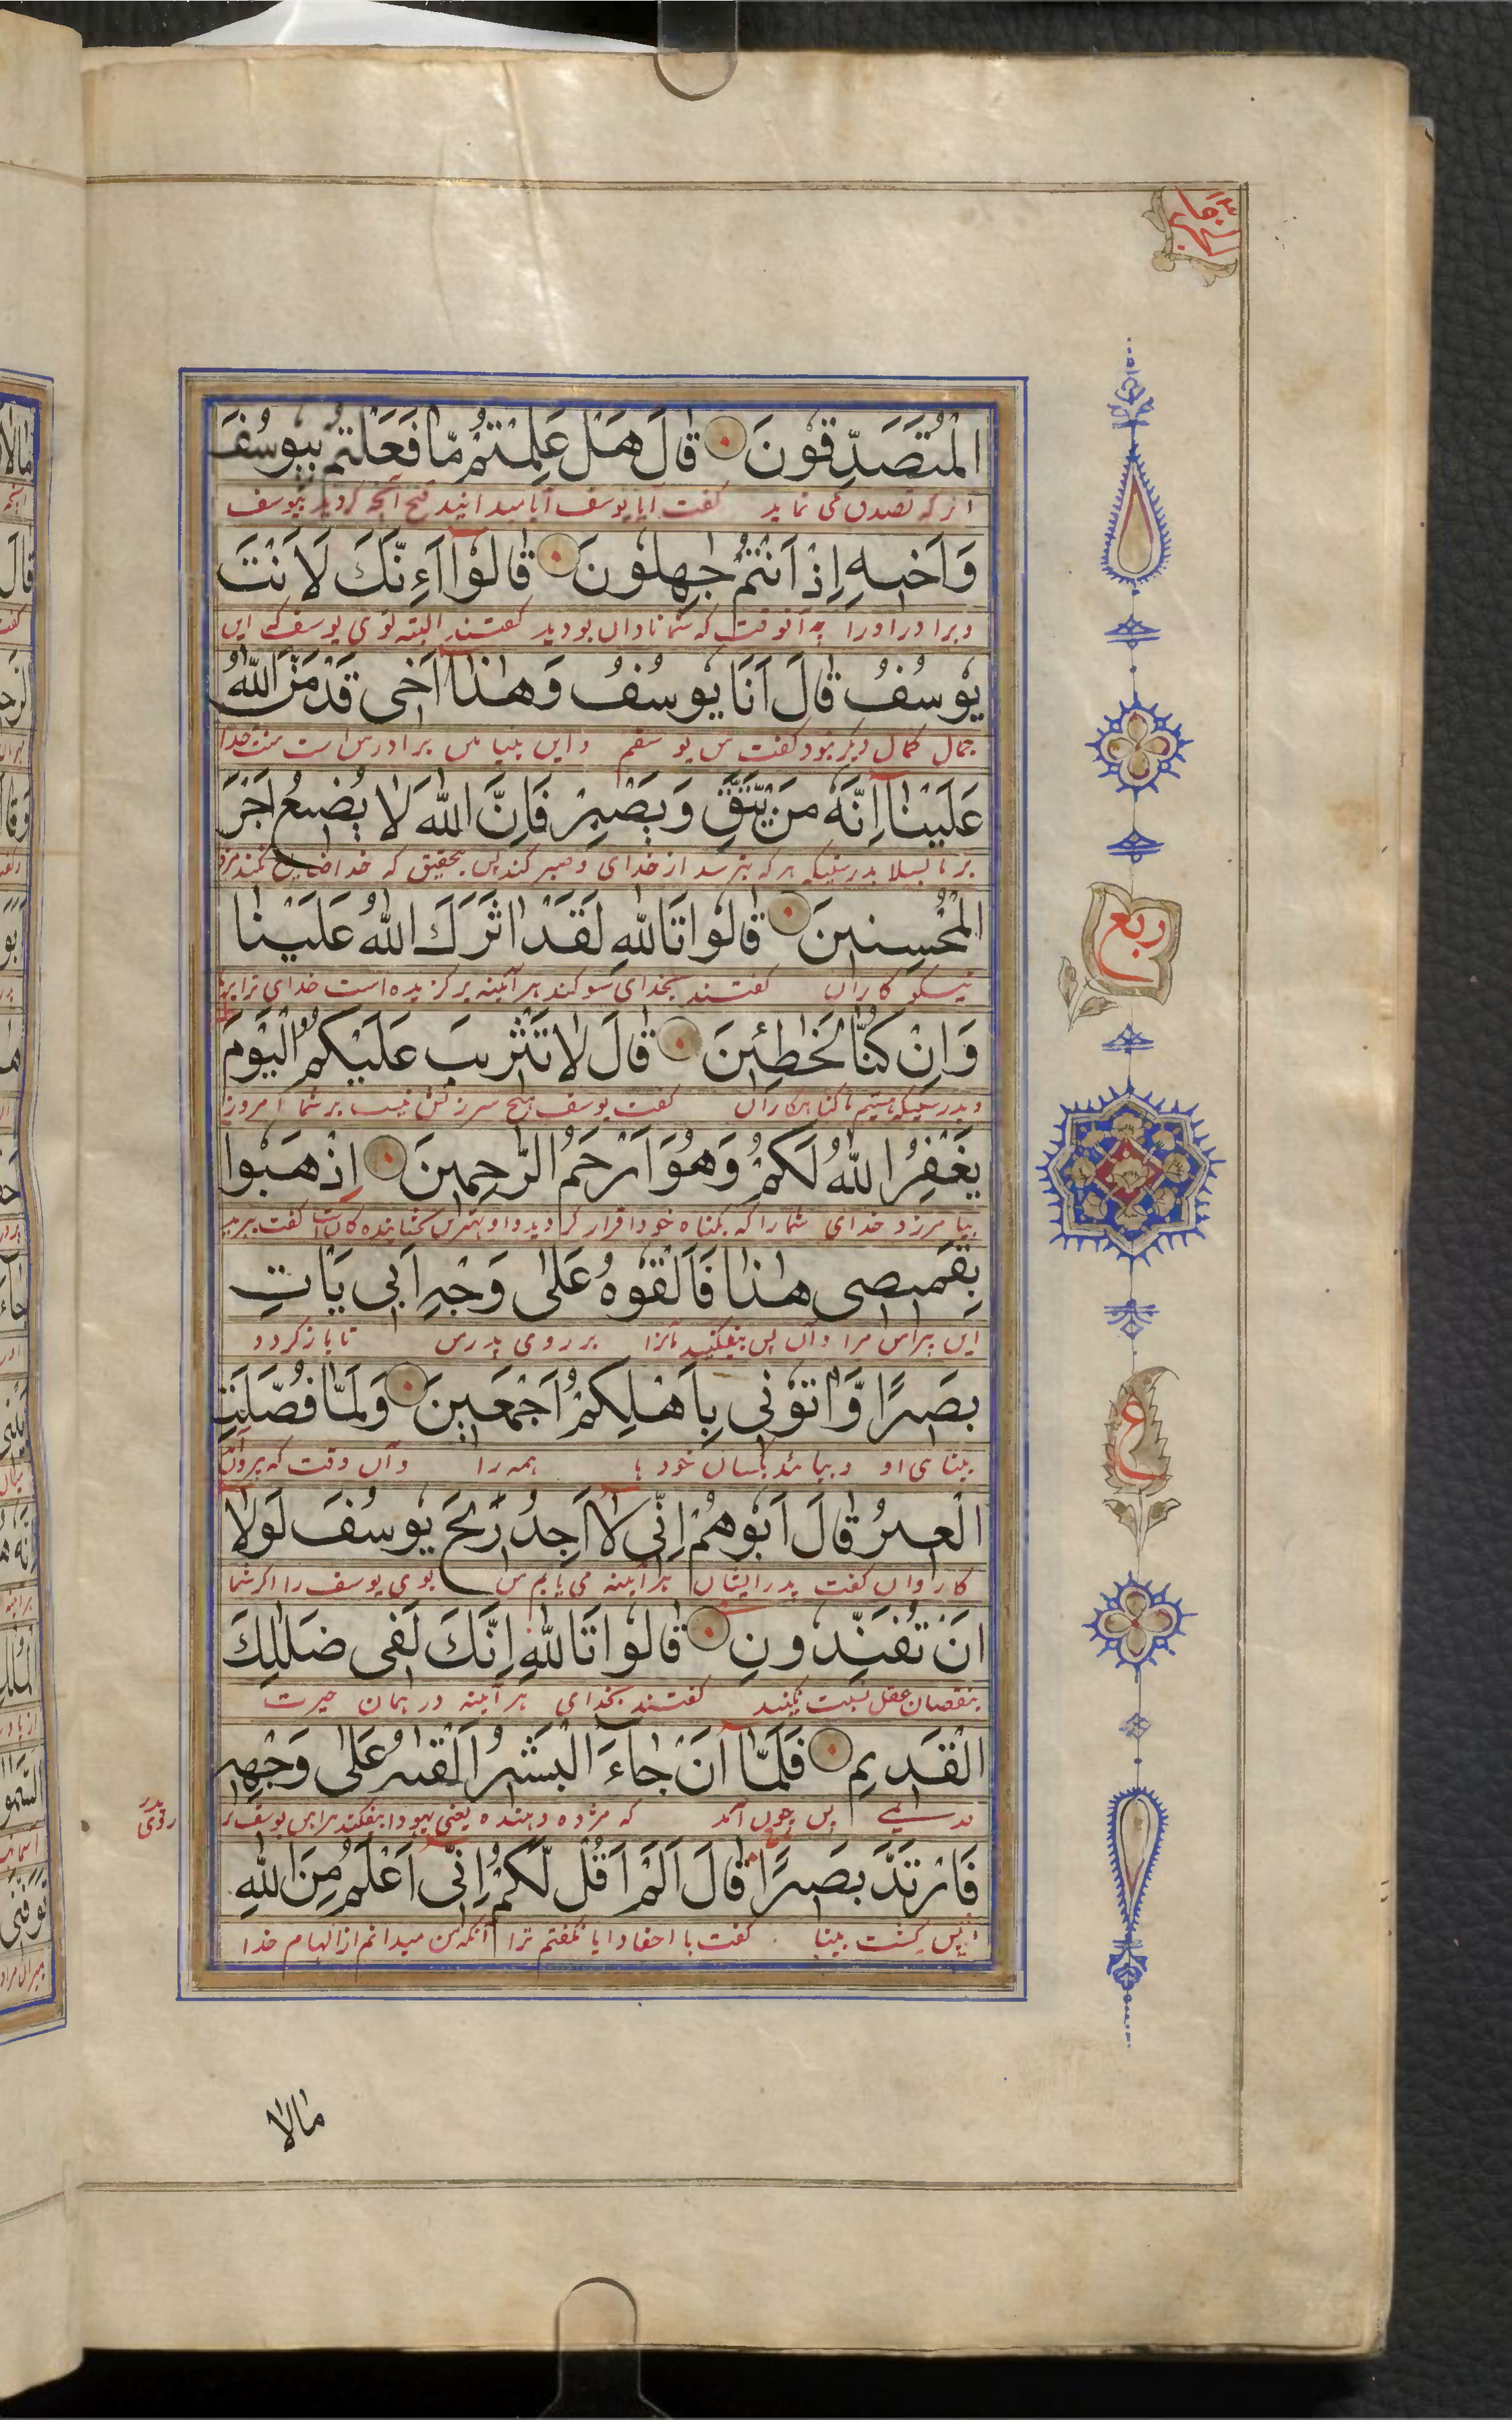 الْمُتَصَدِّقُونَ قَالَ هَلْ عَلِمْتُمْ مَّا فَعَلْتُمْ بِيُوسُفَ
گفت آیا یوسف آیا میدانید قبح آنچه کردید بیوسف
وَاَخِیهِ اِذْ اَنْتُمْ جٰهِلُونَ قَالُوْا اَءِنَّكَ لَاَنْتَ
و برادر اورا به آنوقت که شما نادان بودید گفتند البته توی یوسف که این
یُوسُفُ قَالَ اَنَا یُوسُفُ وَهٰذَا اَخِی قَدْ مَنَّ اللهُ
جمال کمال دیگر نبود گفت من یوسفم و این بنیامین برادر من است منت خدا
عَلَیْنَا اِنَّهُ مَنْ یَّتَّقِ وَیَصْبِرْ فَاِنَّ اللهَ لَا یُضِیعُ اَجْرَ
بدرستیکه هرکه بترسد از خدای و صبر کند پس بتحقیق که خدا ضایع نکند مزد
الْمُحْسِنِینَ قَالُوا تَاللهِ لَقَدْ اٰثَرَكَ اللهُ عَلَیْنَا
نیکو کاران گفتند بخدای سوگند هر آینه برگزیده است خدای ترا بر ما
وَاِنْ كُنَّا لَخٰطِئِینَ قَالَ لَا تَثْرِیبَ عَلَیْكُمُ الْیَوْمَ
و بدرستیکه هستیم ما گناهکاران گفت یوسف هیچ سرزنش نیست بر شما امروز
یَغْفِرُ اللهُ لَكُمْ وَهُوَ اَرْحَمُ الرّٰحِمِینَ اِذْهَبُوا
بیامرزد خدای شما را که بگناه خود اقرار کردید و او بهترین بخشاینده کان است گفت ببرید
بِقَمِیصِی هٰذَا فَاَلْقُوهُ عَلٰی وَجْهِ اَبِی یَاْتِ
این پیراهن مرا و آن پس بیفکنید آنرا بر روی پدر من تا باز گردد
بَصِیرًا وَّاْتُوْنِی بِاَهْلِكُمْ اَجْمَعِینَ وَلَمَّا فَصَلَتِ
بینای او و بیائید بکسان خود همه را و آن وقت که بیرون
الْعِیرُ قَالَ اَبُوهُمْ اِنِّی لَاَجِدُ رِیحَ یُوسُفَ لَوْلَا
کاروان گفت پدر ایشان هر آینه می یابم من بوی یوسف را اگر شما
اَنْ تُفَنِّدُونِ قَالُوا تَاللهِ اِنَّكَ لَفِی ضَلٰلِكَ
بنقصان عقل نسبت نکنید گفتند بخدای هر آینه در همان حیرت
الْقَدِیمِ فَلَمَّا اَنْ جَاءَ الْبَشِیرُ اَلْقٰیهُ عَلٰی وَجْهِهِ
قدیمی پس چون آمد که مژده دهنده یعنی یهودا بیفکند پیراهن یوسف بر
روی پدر
فَارْتَدَّ بَصِیرًا قَالَ اَلَمْ اَقُلْ لَّكُمْ اِنِّی اَعْلَمُ مِنَ اللهِ
پس گشت بینا گفت با احفاد ایا نگفتم ترا آنکه من میدانم از الهام خدا
ربع
ع
مَالَا